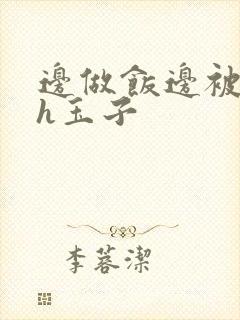 邊做飯邊被
h玉子
李蓉潔